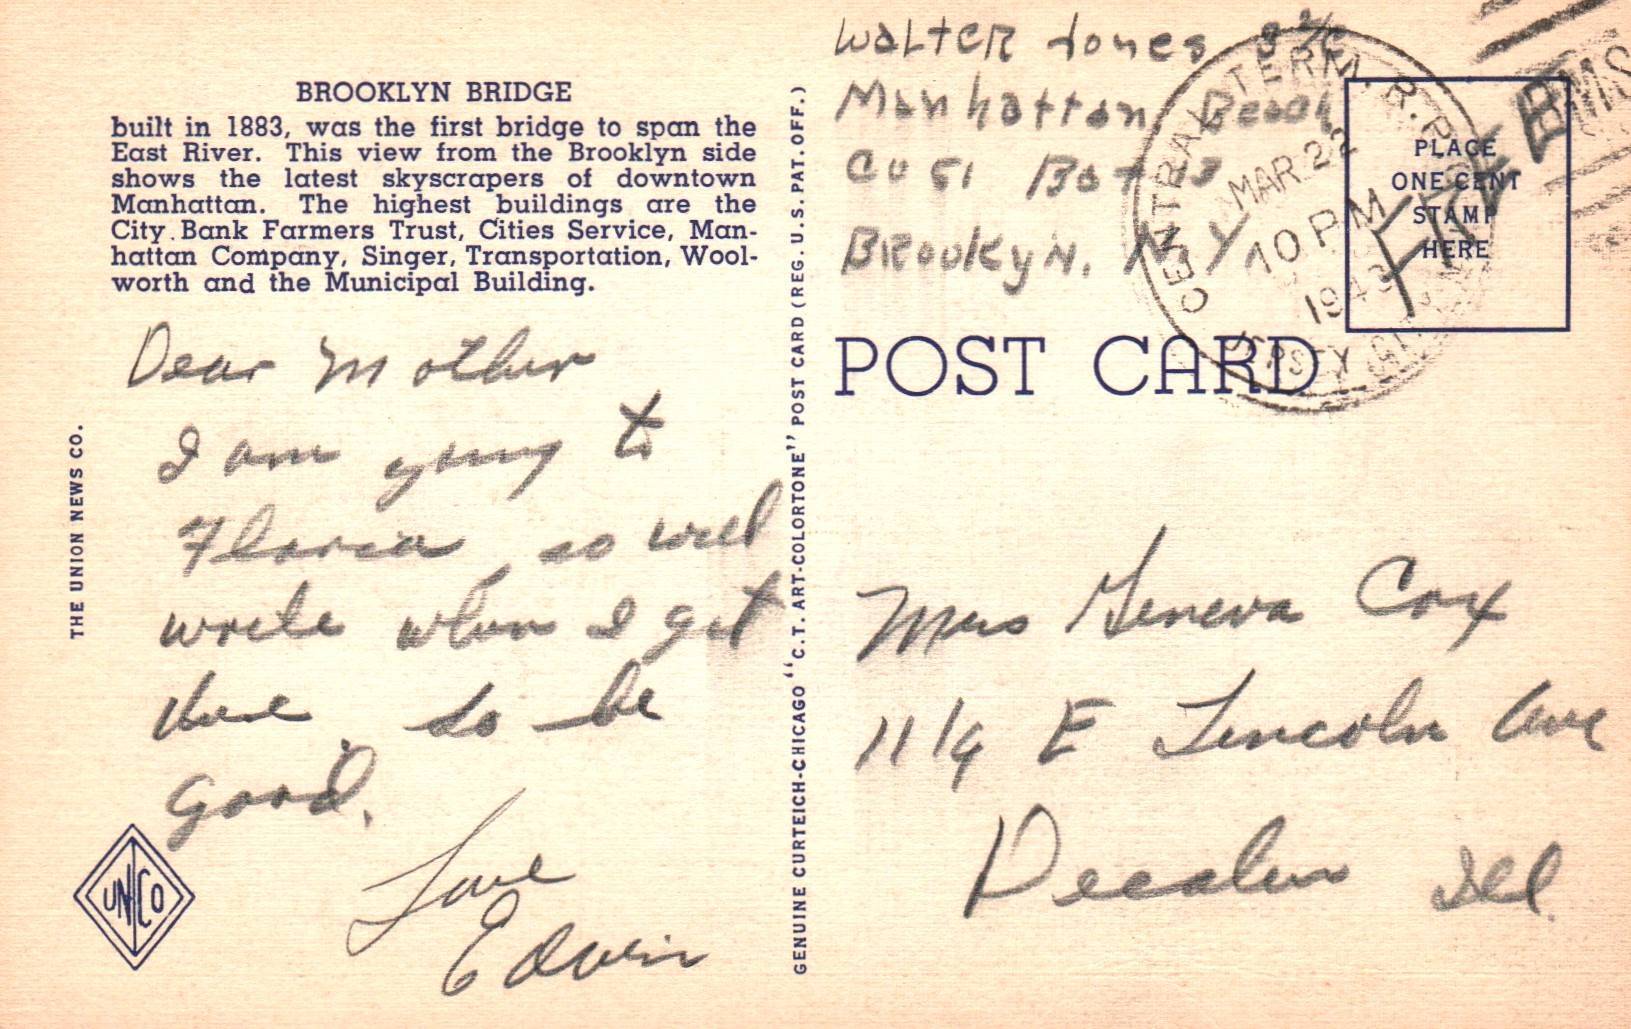 BROOKLYN BRIDGE
built in 1883, was the first bridge to span the
East River. This view from the Brooklyn side
shows the latest skyscrapers of downtown
Manhattan. The highest buildings are the
City Bank Farmers Trust, Cities Service, Man-
hattan Company, Singer, Transportation, Wool-
worth and the Municipal Building.
Dear Mother
I am going to
Floria so will
write when I get
there so be
good.
Love
Edwin
THE UNION NEWS CO.
UN CO
GENUINE CURTEICH-CHICAGO "C.T. ART-COLORTONE" POST CARD (REG. U.S. PAT. OFF.)
Walter Jones S 2/C
Manhattan Beach
CO 51 Bat 13
Brooklyn. N.Y.
CENTRAL TERM. R.P.O.
MAR 22
10 PM
1943
JERSEY CITY, N.J.
Free
PLACE
ONE CENT
STAMP
HERE
POST CARD
Mrs Geneva Cox
1119 E Lincoln Ave
Decatur Ill.